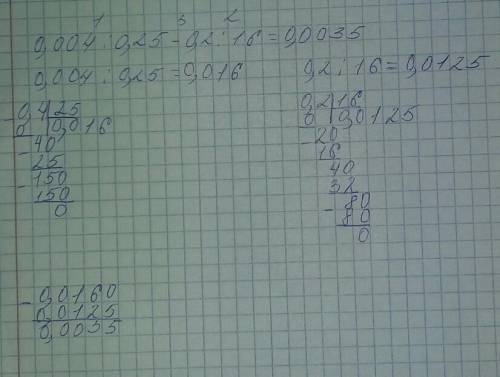 1 3 2
0,004 : 0,25 - 0,2 : 16 = 0,0035
0,004 : 0,25 = 0,016
0,2 : 16 = 0,0125
- 0,4 | 25
0 | 0,016
- 40
25
- 150
150
0
0,2 | 16
0 | 0,0125
- 20
16
40
32
- 80
80
0
- 0,0160
0,0125
0,0035